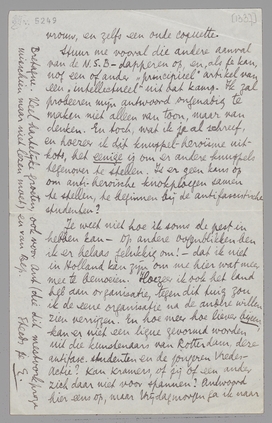 5249
[1937]
vrouw, en zelfs een oude coquette.
Stuur me vooral die andere aanval
van de N.S.B-dapperen op, en, als je kan,
nog een of ander "principieel" artikel van
een "intellectueel" uit dat kamp. Ik zal
probeeren mijn antwoord ongenadig te
maken niet alleen van toon, maar van
denken. En toch, wat ik je al schreef,
en hoezeer ik dit knuppel-heroïsme uit-
kots, het eenige is om er andere knuppels
tegenover te stellen. Is er geen kans op
om anti-heroïsche knokploegen samen
te stellen, te beginnen bij de antifascistische
studenten?
Ik weet niet hoe ik soms de pest in
hebben kan - op andere oogenblikken ben
ik er helaas gelukkig om! - dat ik niet
in Holland kan zijn om me hier wat mee
mee te bemoeien. Hoezeer ik ook het land
heb aan organisatie, tegen dit tuig zou
ik de eene organisatie na de andere willen
zien verrijzen. En hoe meer hoe liever,
kan er niet een ligue gevormd worden
uit die kunstenaars van Rotterdam, deze
antifasc. studenten en de jongeren Vredes-
actie? Kan Kramers, of jij of een ander,
zich daar niet voor spannen? Antwoord
hier eens op, maar Vrijdagmorgen ga ik naar
Bretagne. Veel hartelijke groeten, ook voor Ant (die dit
misschien maar niet lezen moet) en van Bep.
Steeds je E.